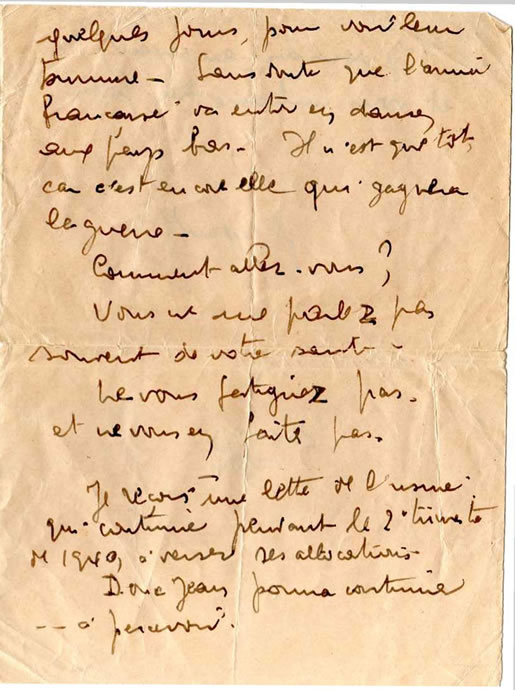 quelques jours, pour voir leur
tournure - Sans doute que l'armée
française va entrer en danse,
aux Pays bas - Il n'est que tôt,
car c'est encore elle qui gagnera
la guerre -
Comment allez-vous ?
Vous ne me parlez pas
souvent de votre santé -
Ne vous fatiguez pas -
et ne vous en faite pas.
Je reçois une lettre de l'usine
qui continue pendant le 2e trimestre
de 1940, à verser ses allocations -
Donc Jean pourra continuer
-- à percevoir.